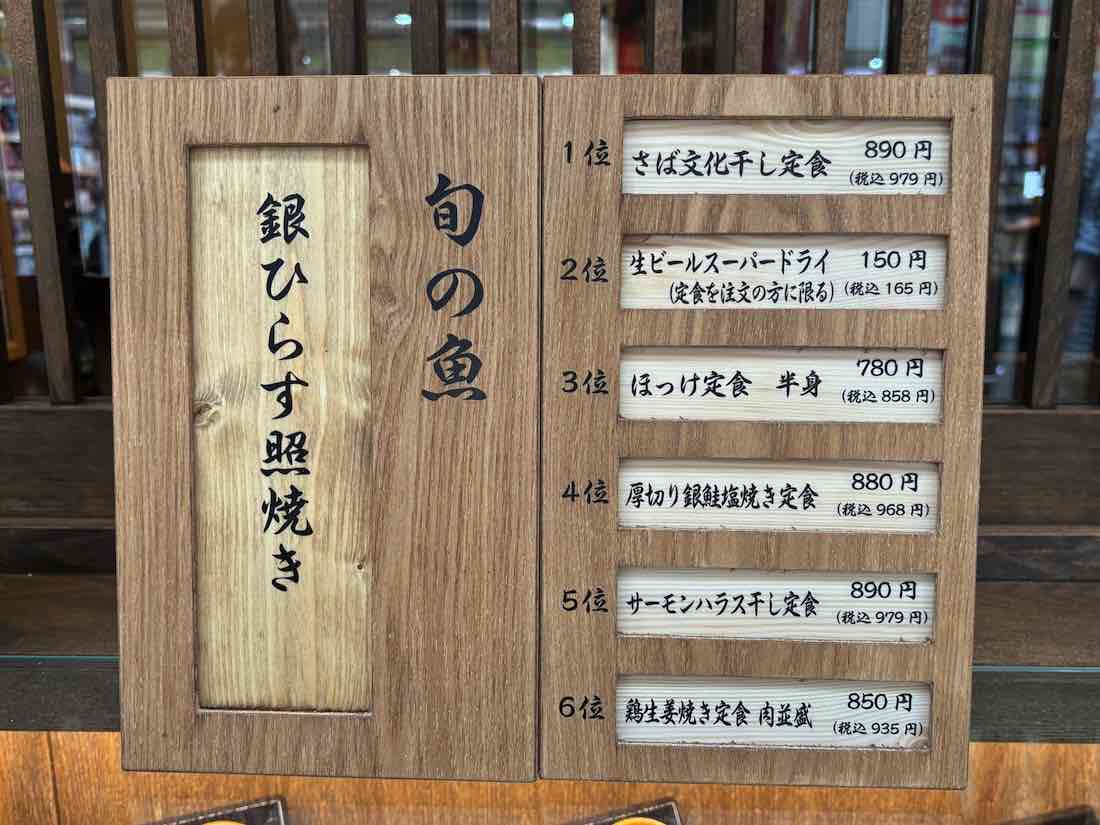 旬の魚
銀ひらす照焼き
1位
さば文化干し定食
890円
(税込979円)
2位
生ビールスーパードライ
(定食を注文の方に限る)
150円
(税込165円)
3位
ほっけ定食 半身
780円
(税込858円)
4位
厚切り銀鮭塩焼き定食
880円
(税込968円)
5位
サーモンハラス干し定食
890円
(税込979円)
6位
鶏生姜焼き定食 肉並盛
850円
(税込935円)